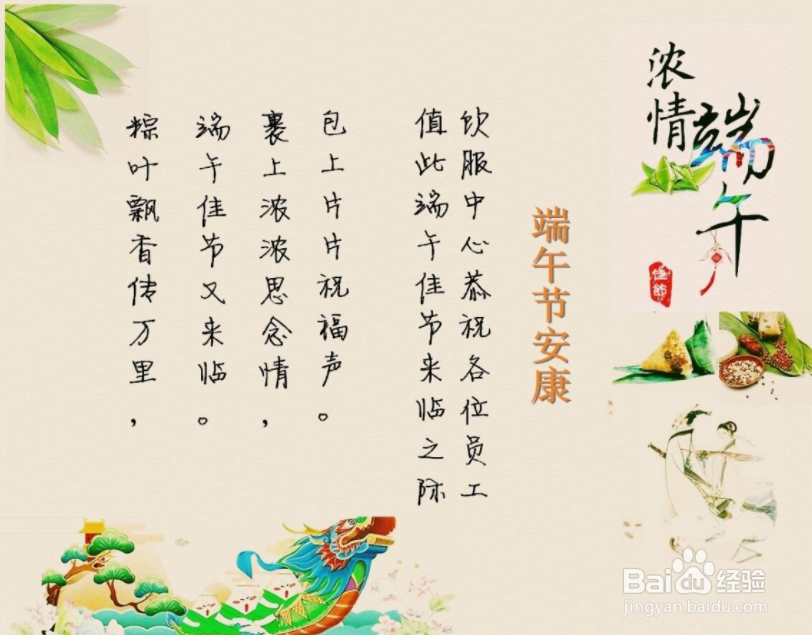 粽叶飘香传万里,
端午佳节又来临。
裹上浓浓思念情,
包上片片祝福声。
值此端午佳节来临之际
饮服中心恭祝各位员工
端午节安康
浓情
端午
Baidu经验
jingyan.baidu.com